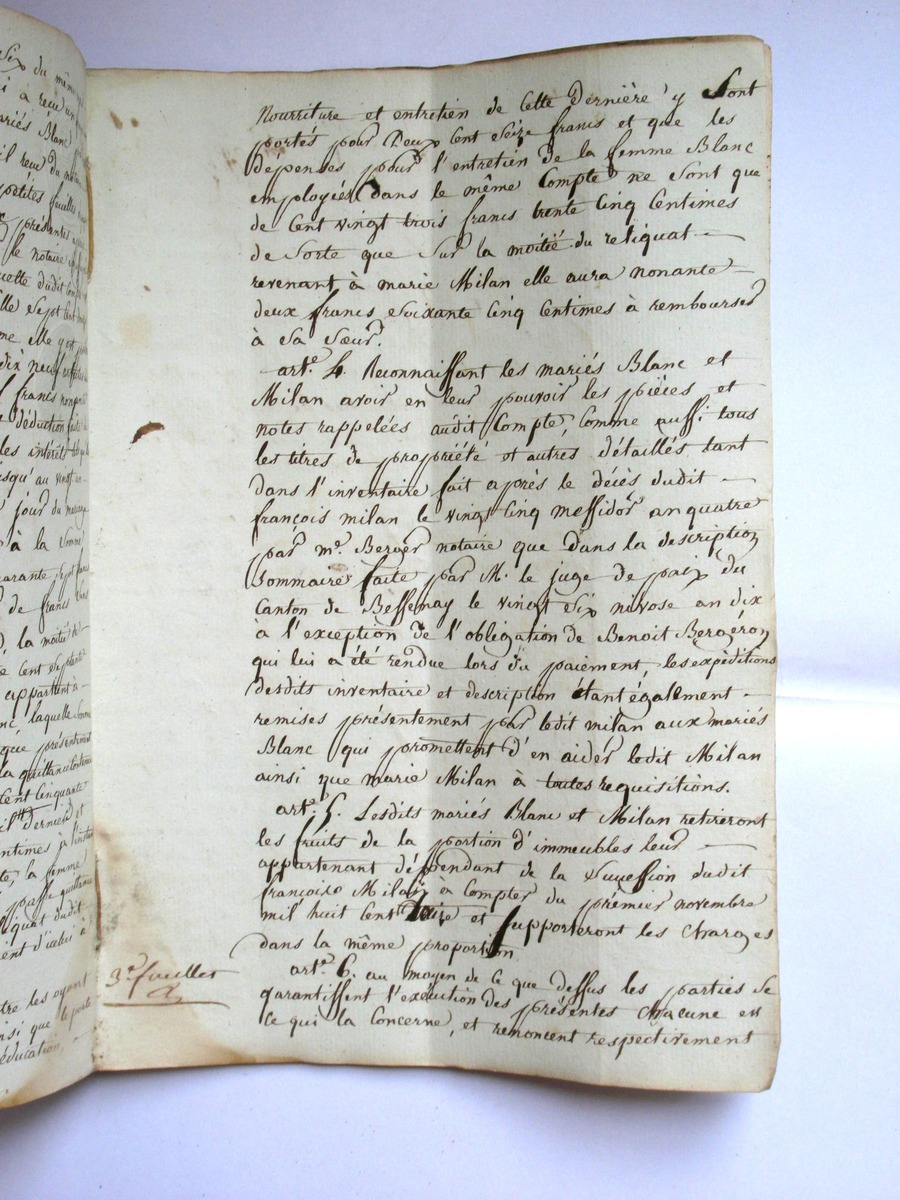 six du même
i a reçu un
ariés Blanc
il reçu du
petites feuilles
présentes
le notaire
dudit
ille sept cent
me elle
dix neuf
francs
déduction
les intérêts
jusqu'au vingt
jour du mariage
à la somme
quarante sept
de francs
la moitié de
cent septante
appartient à
laquelle somme
que présentement
la quittance
cent cinquante
dernier et
centimes à l'instant
la femme
passe quittance
dudit
d'icelui à
tre les ayant
insi que le
éducation,
nourriture et entretien de cette dernière y sont
portés pour deux cent seize francs et que les
dépenses pour l'entretien de la femme Blanc
employées dans le même compte ne sont que
de cent vingt trois francs trente cinq centimes
de sorte que sur la moitié du reliquat —
revenant à marie Milan elle aura nonante —
deux francs soixante cinq centimes à rembourser
à sa sœur.
art.e 4. Reconnaissant les mariés Blanc et
Milan avoir en leur pouvoir les pièces et
notes rappelées audit compte, comme aussi tous
les titres de propriété et autres détaillés tant
dans l'inventaire fait après le décès dudit —
françois milan le vingt cinq messidor an quatre
par m.e Berger notaire que dans la description
sommaire faite par M. le juge de paix du
canton de Bessenay le vingt six nivose an dix
à l'exception de l'obligation de Benoit Bergeron
qui lui a été rendue lors du paiement, les expéditions
desdits inventaire et description étant également —
remises présentement par ledit milan aux mariés
Blanc qui promettent d'en aider ledit Milan
ainsi que marie Milan à toutes requisitions.
art.e 5. Lesdits mariés Blanc et Milan retireront
les fruits de la portion d'immeubles leur —
appartenant dépendant de la succession dudit
françois Milan à compter du premier novembre
mil huit cent et supporteront les charges
dans la même proportion
art.e 6. au moyen de ce que dessus les parties se
garantissent l'exécution des présentes chacune en
ce qui la concerne, et renoncent respectivement
3.e feuillet